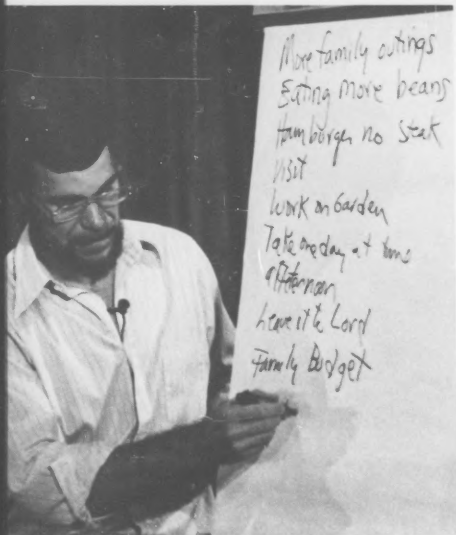 More family outings
Eating more beans
Hamburger no steak
Visit
Work on Garden
Take one day at time
afternoon
Leave it to Lord
Family Budget